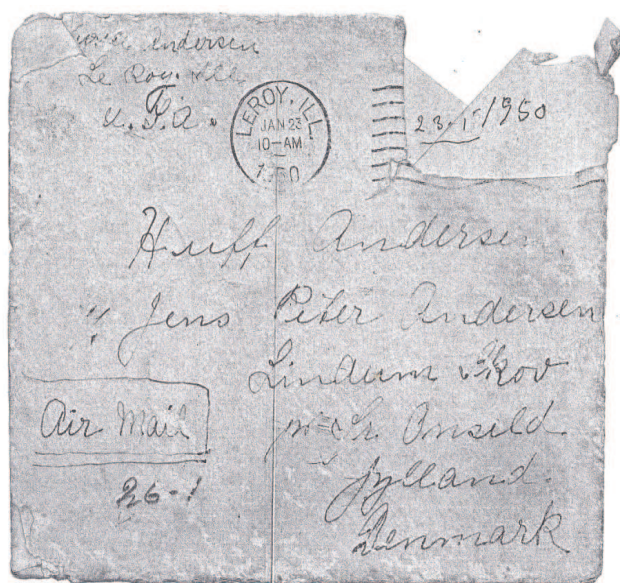 Andersen
Le Roy. Ill.
U.S.A.
LEROY, ILL.
JAN 23
10-AM
1950
23-1-1950
Huff Andersen
Jens Peter Andersen
Lindum Skov
pr. Sr. Onsild
Jylland.
Denmark
Air Mail
26-1